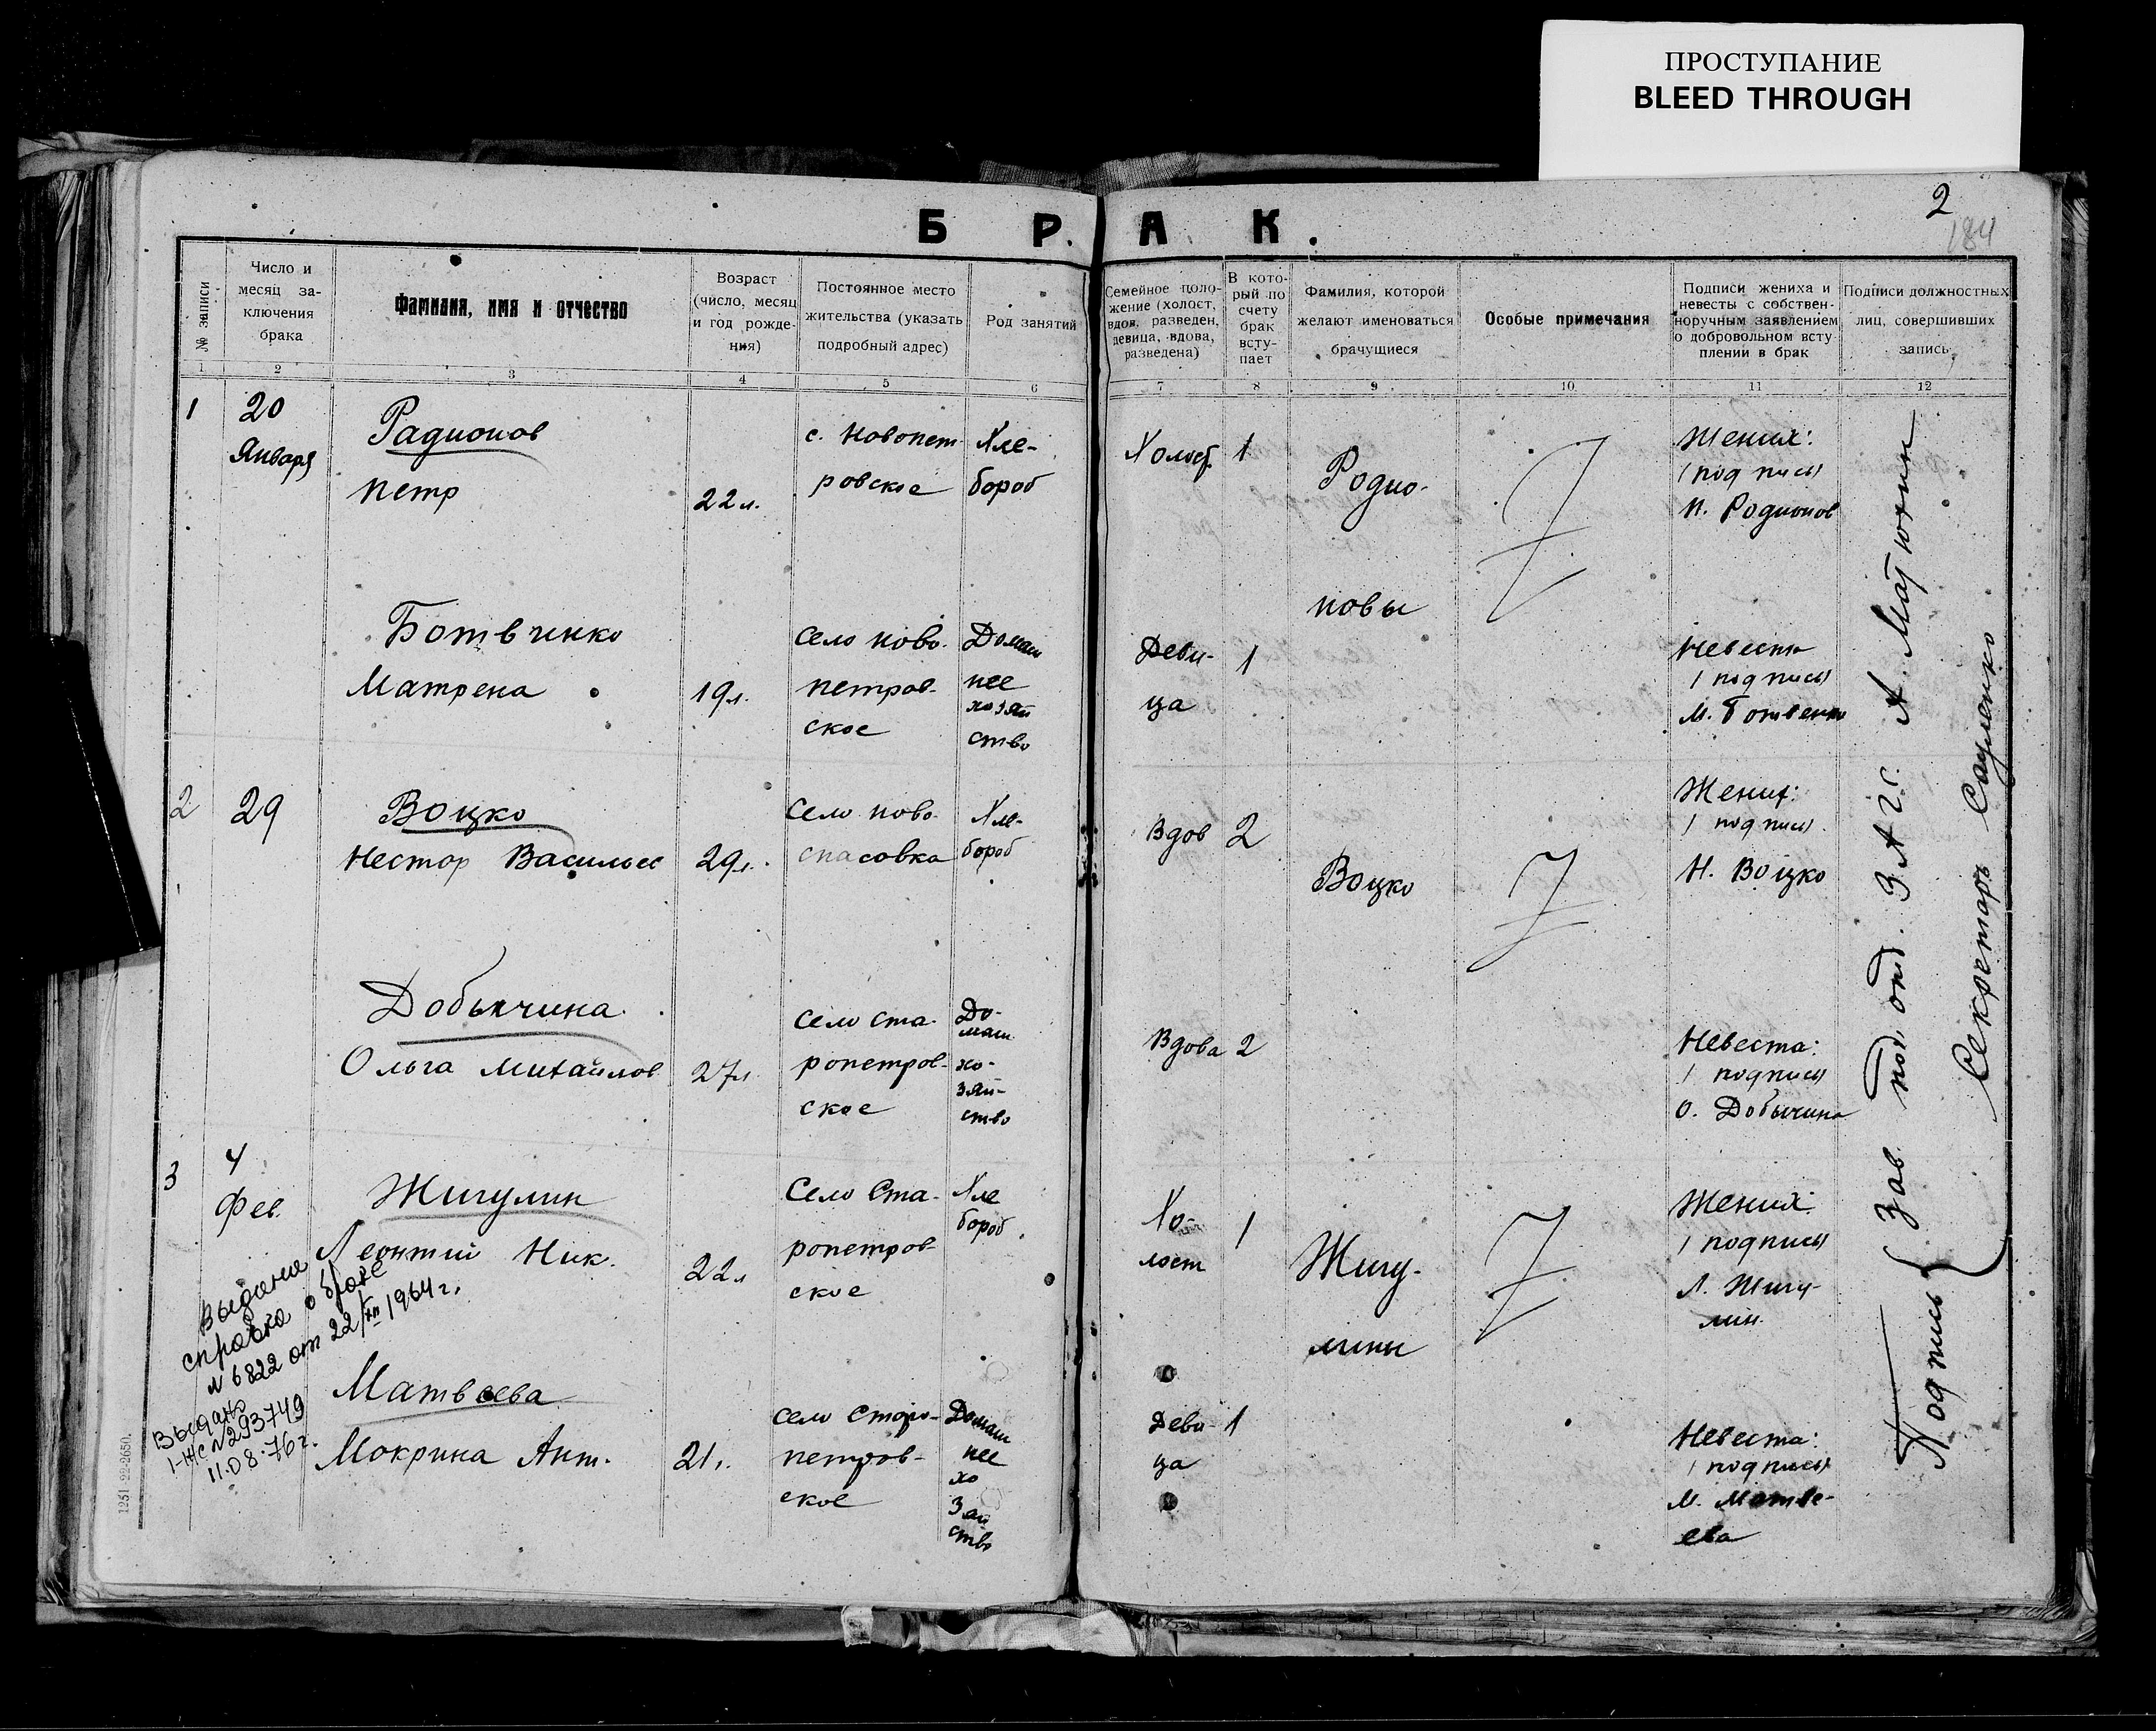 ПРОСТУПАНИЕ
BLEED THROUGH
2
184
БРАК.
№ записи
Число и месяц за-ключения брака
Фамилия, имя и отчество
Возраст (число, месяц и год рожде-ния)
Постоянное место жительства (указать подробный адрес)
Род занятий
Семейное поло-жение (холост, вдов, разведен, девица, вдова, разведена)
В кото-рый по счету брак всту-пает
Фамилия, которой желают именоваться брачущиеся
Особые примечания
Подписи жениха и невесты с собствен-норучным заявлением о добровольном всту плении в брак
Подписи должностных лиц, совершивших запись
1 2 3 4 5 6 7 8 9 10 11 12
1
20
Января
Радионов
Петр
22 л.
с. Новопет
ровское
Хле-
бороб
Холост
1
Родио-
новы
Жених:
(подпись)
П. Родионов
Ботвинко
Матрена
19 л.
село Ново-
петров-
ское
Домаш
нее
хозяй
ство
Деви-
ца
1
Невеста
(подпись)
М. Ботвенко
2
29
Воцко
Нестор Васильев
29 л.
село Ново-
спасовка
Хле-
бороб
Вдов
2
Воцко
Жених:
(подпись)
Н. Воцко
Добычина
Ольга Михайлов
27 л
село Ста-
ропетров-
ское
До-
маш
хо-
зяй-
ство
Вдова
2
Невеста:
(подпись)
О. Добычина
3
4
Фев.
Жигулин
Леонтий Ник.
22 л
Село Ста-
ропетров-
ское
Хле
бороб
Хо-
лост
1
Жигу-
лины
Жених:
(подпись)
Л. Жигу-
лин.
Выдана
справка о браке
N 6822 от 22/XII 1964 г.
Выдано
I-ЖС N293749
11.08.76 г.
Матвеева
Мокрина Ант.
21 л.
село Старо-
петров-
ское
Домаш
нее
хо
зяй
ство
Деви-
ца
1
Невеста:
(подпись)
М. Матве-
ева
Подпись { Зав. под отд. ЗАГС. А. Матюхин
Секретарь
1251-22-2650.